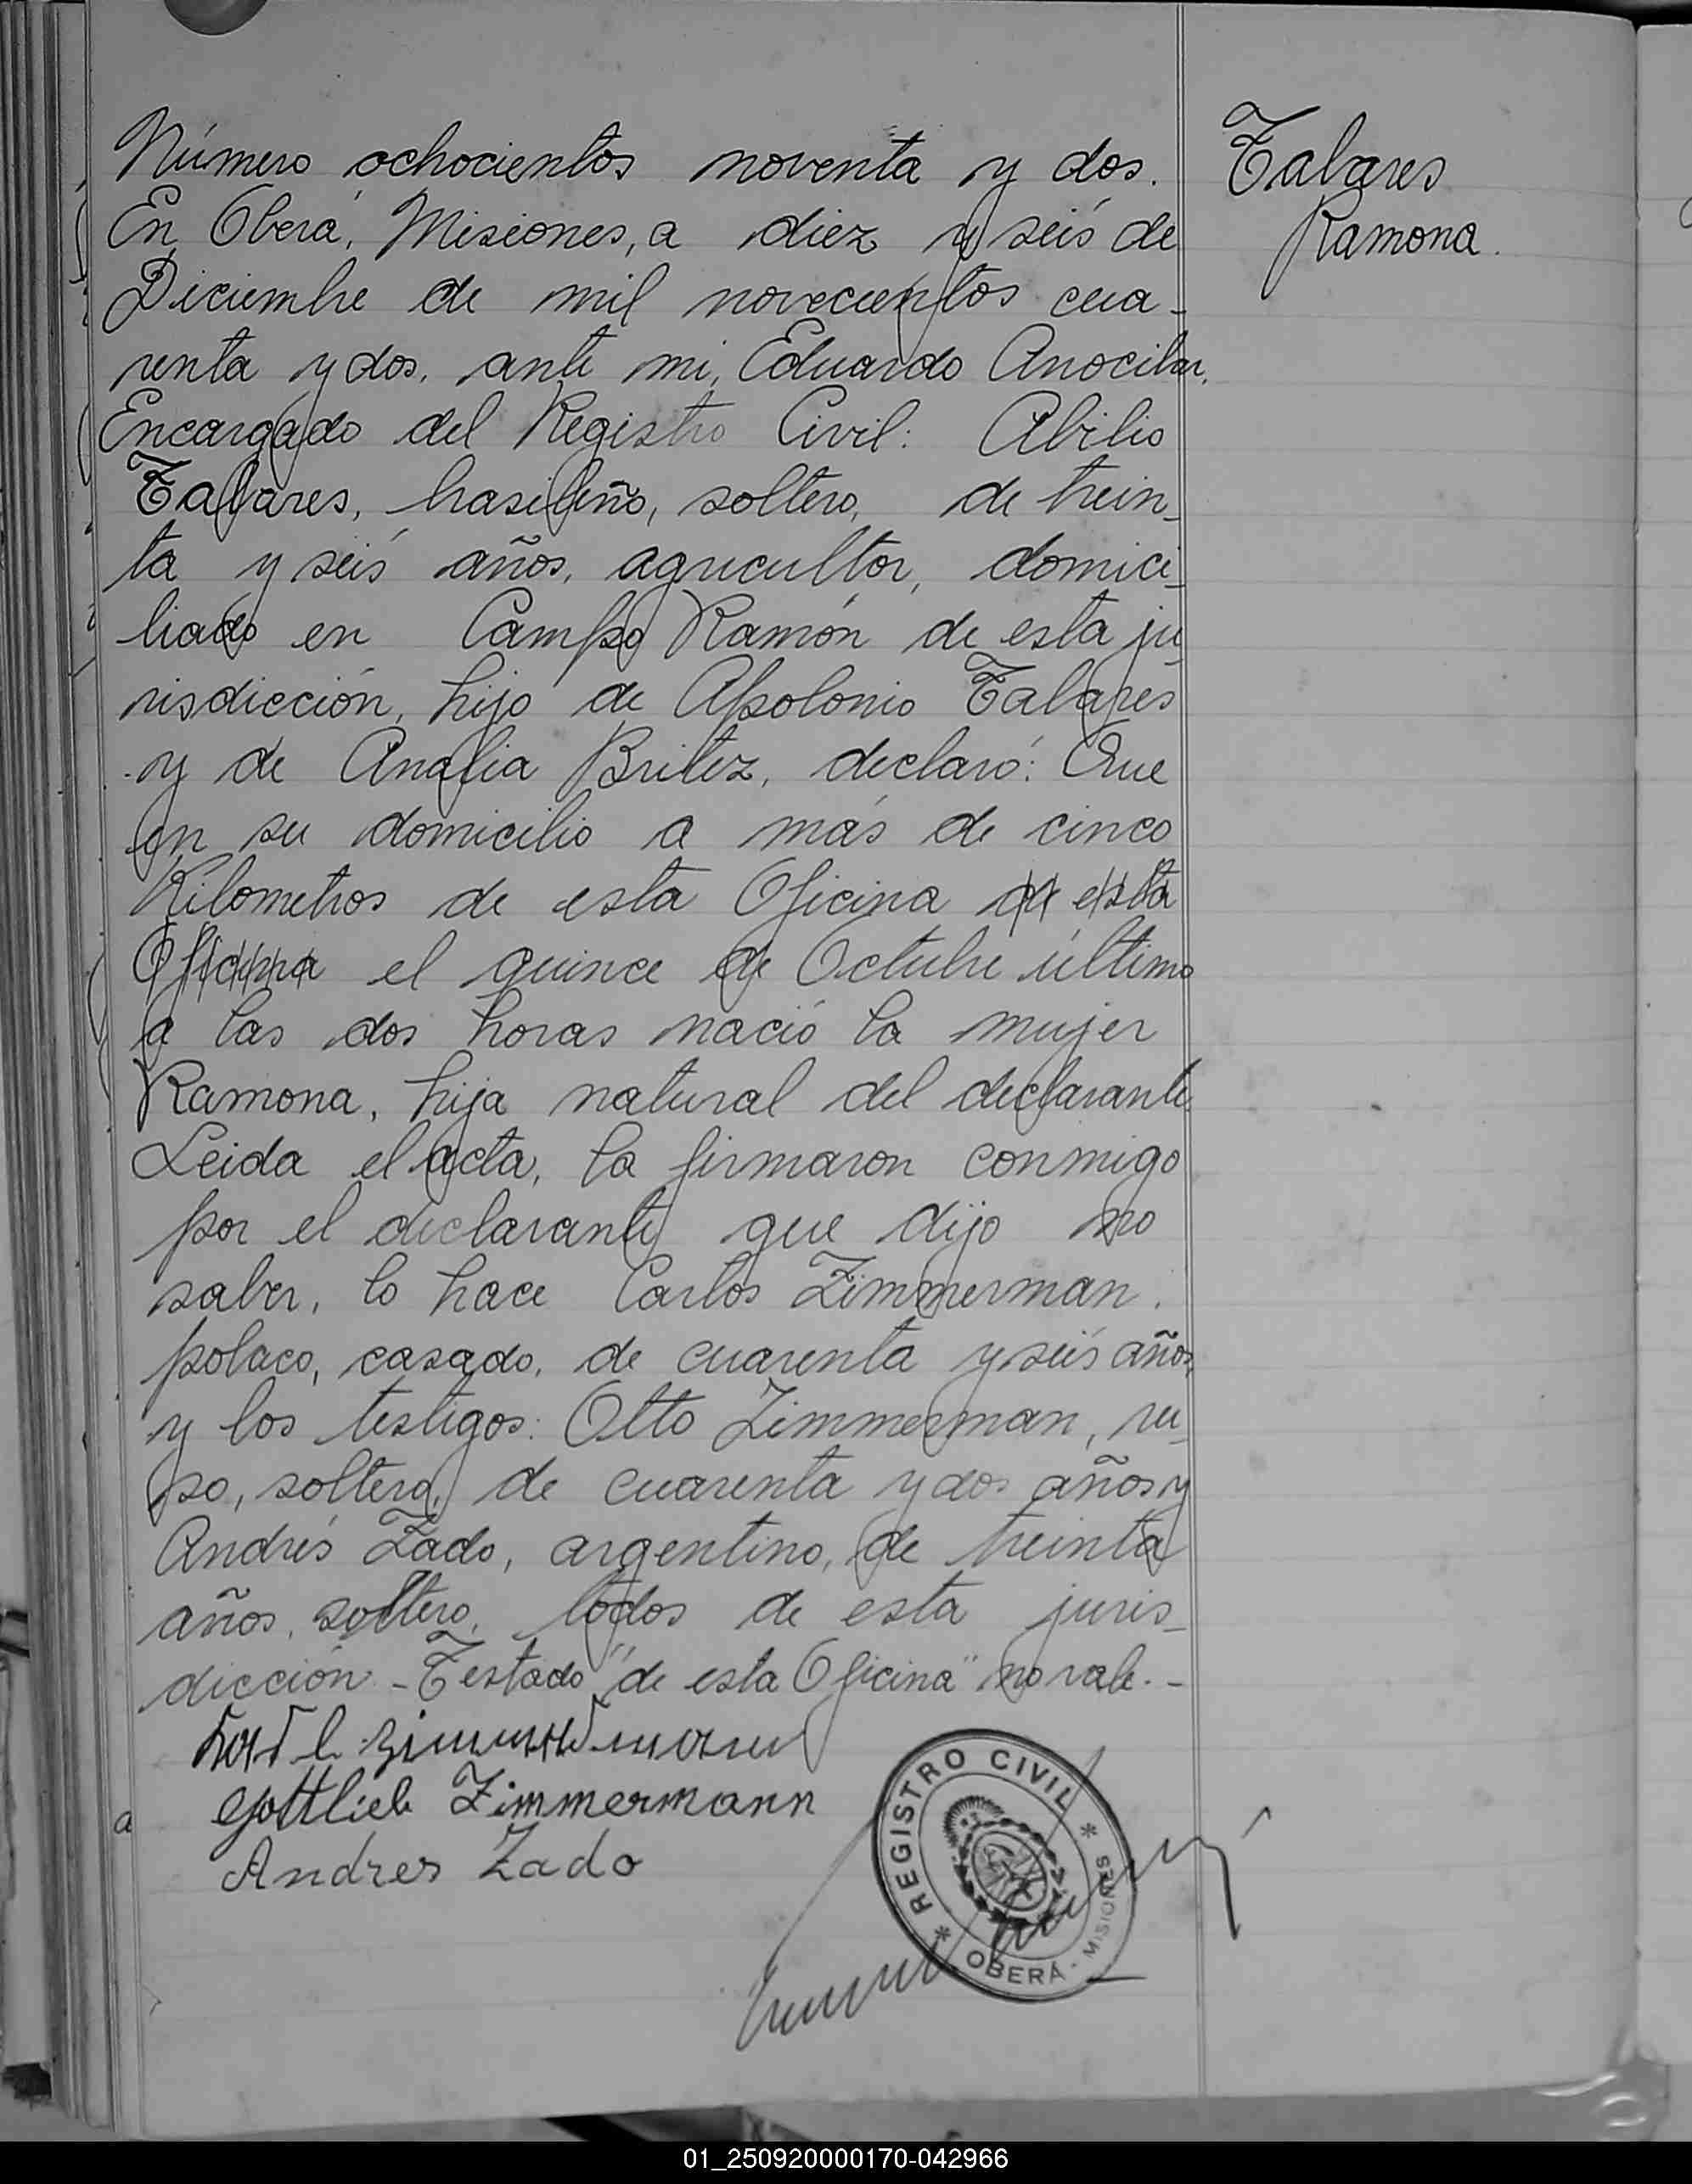 Número ochocientos noventa y dos.
En Oberá, Misiones, a diez y seis de
Diciembre de mil novecientos cua-
renta y dos, ante mi, Eduardo Anocibar,
Encargado del Registro Civil: Abilio
Tabares, brasileño, soltero, de trein-
ta y seis años, agricultor, domici-
liado en Campo Ramón de esta ju-
risdicción, hijo de Apolonio Tabares
y de Analia Britez, declaró: Que
en su domicilio a más de cinco
Kilometros de esta Oficina de esta
Oficina el quince de Octubre último
a las dos horas nació la mujer
Ramona, hija natural del declarante.
Leida el acta, la firmaron conmigo
por el declarante que dijo no
saber, lo hace Carlos Zimmerman,
polaco, casado, de cuarenta y seis años,
y los testigos: Otto Zimmerman, ru-
so, soltero, de cuarenta y dos años y
Andrés Zado, argentino, de treinta
años, soltero, todos de esta juris-
dicción - Testado "de esta Oficina" no vale.-
Zimmermann
Gottlieb Zimmermann
Andres Zado
Tabares
Ramona.
REGISTRO CIVIL
OBERÁ - MISIONES
a
01_250920000170-042966